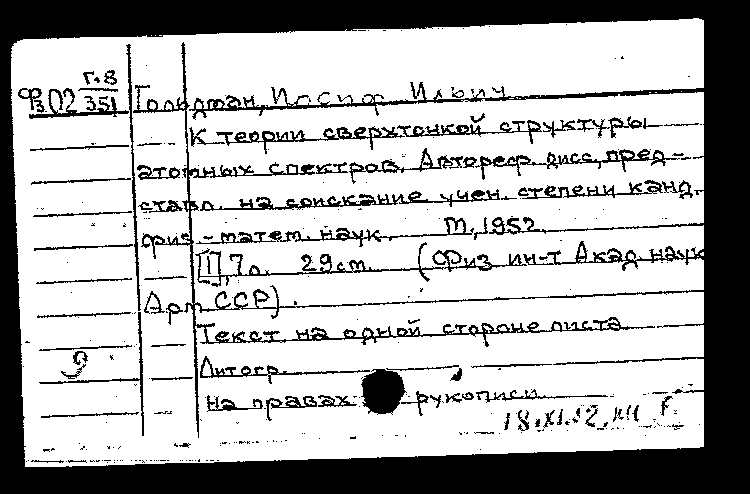 Г.8
Фз02 351 Гольдман, Иосиф Ильич
К теории сверхтонкой структуры
атомных спектров. Автореф. дисс., пред-
ставл. на соискание учен. степени канд.
физ-матем. наук. М., 1952.
[1], 7 л. 29 см. (Физ. ин-т Акад. наук
Арм ССР).
Текст на одной стороне листа
Литогр.
9
на правах рукописи